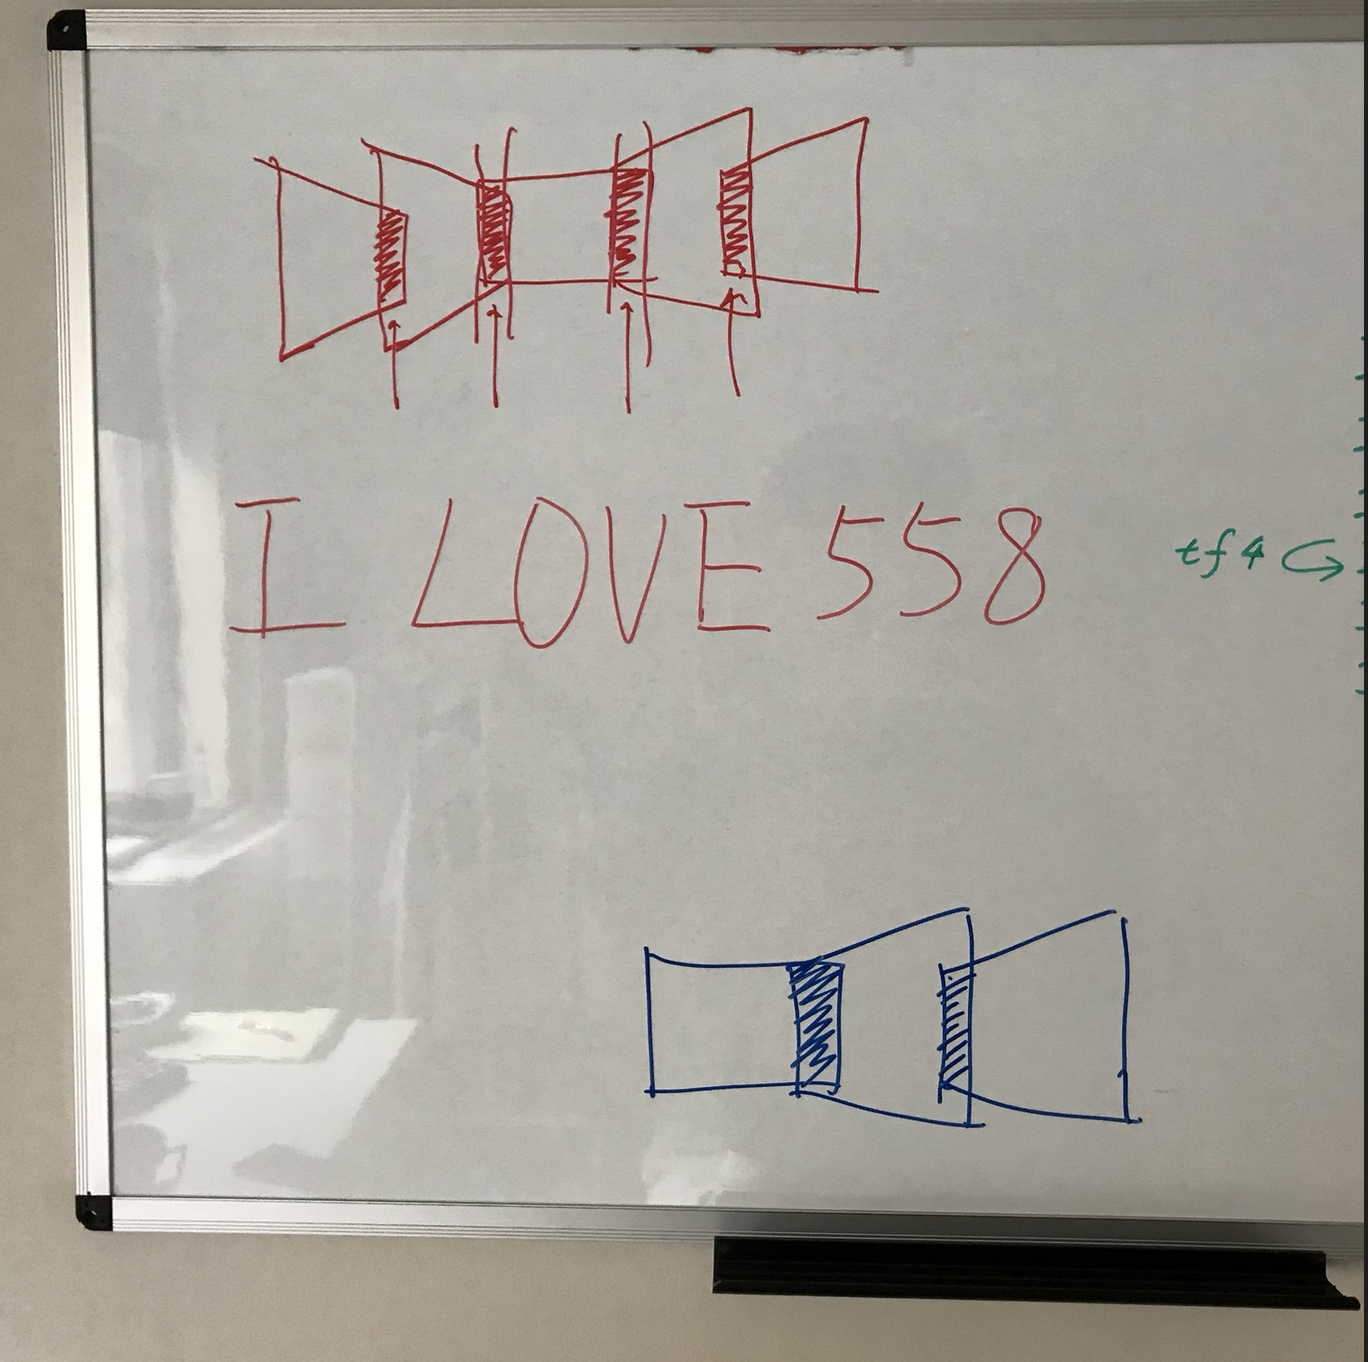 I LOVE 558
tf4